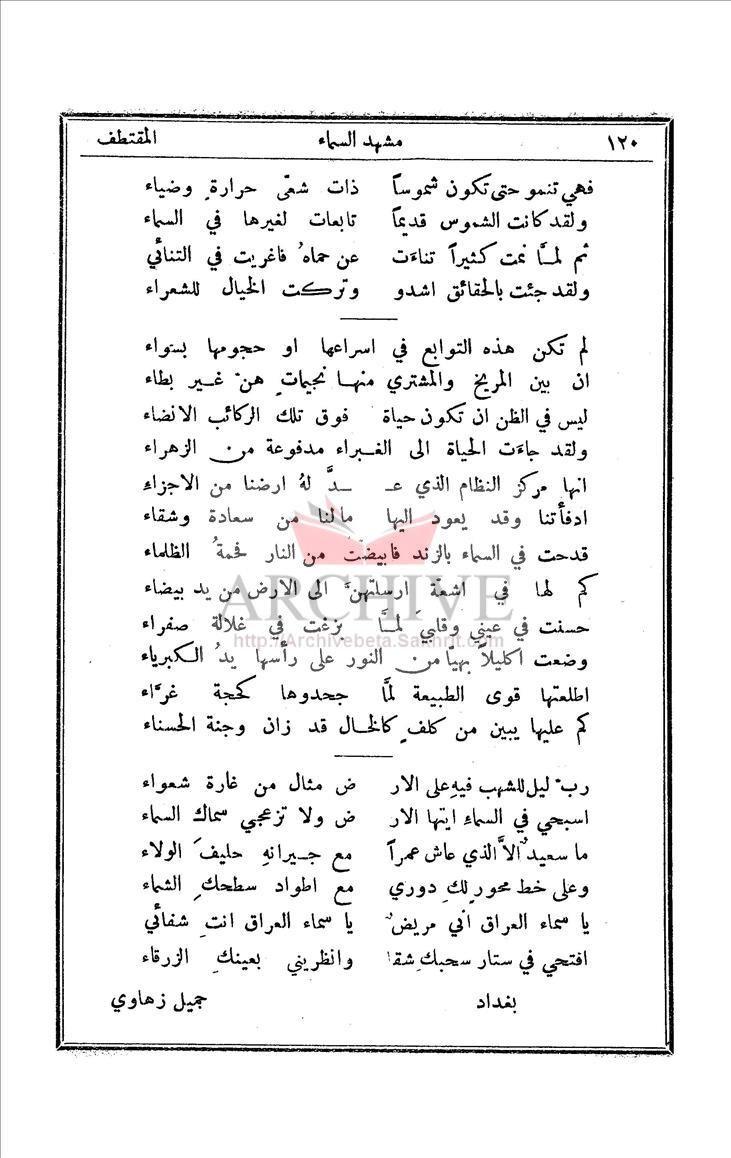 ١٢٠ مشهد السماء المقتطف
فهي تنمو حتى تكون شموساً ذات شتّى حرارةٍ وضياء
ولقد كانت الشموس قديماً تابعات لغيرها في السماء
ثم لمَّا نمت كثيراً تناءَت عن حماهُ فاغريت في التنائي
ولقد جئت بالحقائق اشدو وتركت الخيال للشعراء
لم تكن هذه التوابع في اسراعها او حجومها بسواء
ان بين المريخ والمشتري منها نجيماتٍ هنَّ غير بطاء
ليس في الظن ان تكون حياة فوق تلك الركائب الانضاء
ولقد جاءَت الحياة الى الغبراء مدفوعة من الزهراء
انها مركز النظام الذي عـ ـدَّ لهُ ارضنا من الاجزاءِ
ادفأتنا وقد يعود اليها مالنا من سعادة وشقاء
قدحت في السماء بالزند فابيضَّت من النار فحمةُ الظلماء
كم لها في اشعة ارسلتهنَّ الى الارض من يد بيضاء
حسنت في عيني وقلبيَ لمَّا بزغت في غلالة صفراء
وضعت اكليلاً بهيا من النور على رأسها يدُ الكبرياء
اطلعتها قوى الطبيعة لمَّا جحدوها كحجة غرَّاء
كم عليها يبين من كلفٍ كالخال قد زان وجنة الحسناء
ربَّ ليل للشهب فيهِ على الار ض مثال من غارة شعواء
اسبحي في السماءِ ايتها الار ض ولا تزعجي سماك السماء
ما سعيدٌ الاَّ الذي عاش عمراً مع جيرانهِ حليفَ الولاء
وعلى خط محورٍ لكِ دوري مع اطواد سطحكِ الشماء
يا سماء العراق اني مريضٌ يا سماء العراق انتِ شفائي
افتحي في ستار سحبكِ شقا وانظريني بعينكِ الزرقاء
بغداد جميل زهاوي
ARCHIVE
http://Archivebeta.Sakhrit.com